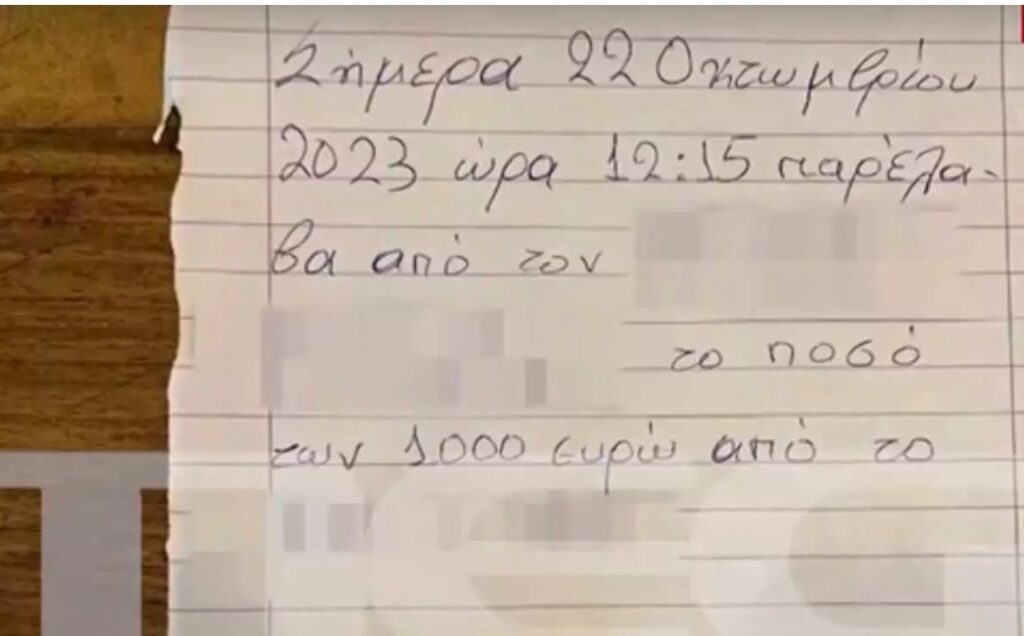 Σήμερα 22 Οκτωμβρίου
2023 ώρα 12:15 παρέλα-
βα από τον
το ποσό
των 1000 ευρώ από το